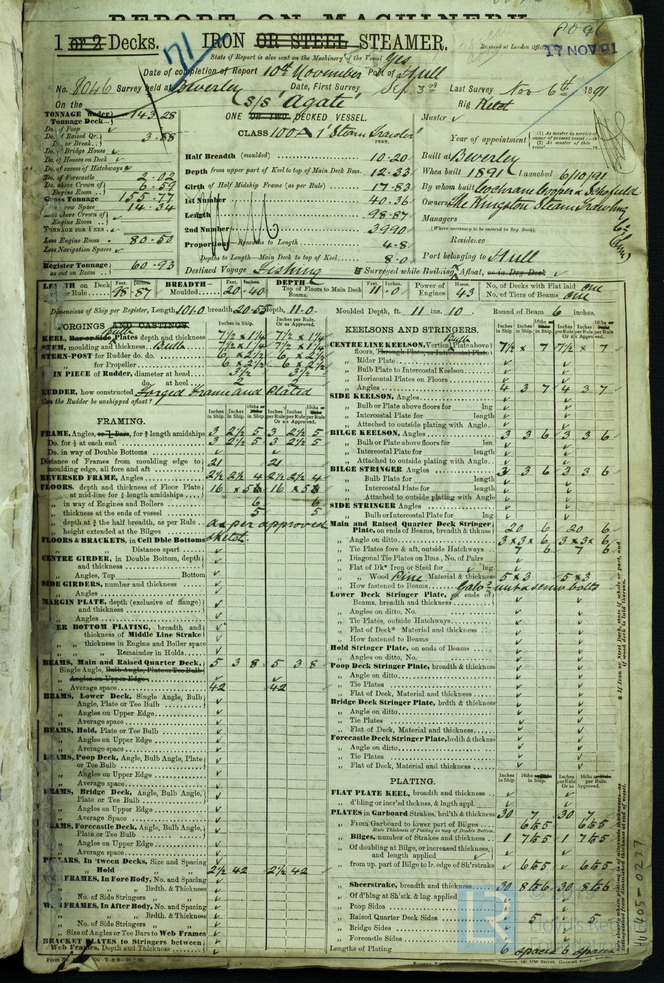 REPORT ON MACHINERY
8046
1 or 2 Decks. IRON OR STEEL STEAMER.
17 NOV 91
71
State if Report is also sent on the Machinery of the Vessel Yes
Date of completion of Report 10th November Port of Hull
No. 8046 Survey held at Beverley Date, First Survey Sep 3rd Last Survey Nov 6th 1891
On the S/S "Agate" Rig Ketch
TONNAGE under Tonnage Deck 143.28
ONE OR TWO DECKED VESSEL.
Master
Do. of Poop
Do. of Raised Qr. Do. or Break 3.88
CLASS 100 A 1 "Steam Trawler"
Year of appointment
Do. of Bridge House
Do. of Houses on Deck
Do. of excess of Hatchways
Do. of Forecastle 2.02
Do. above Crown of Engine Room 6.59
Gross Tonnage 155.77
Less above Crown of Engine Room
TONNAGE FOR FEES
Less Engine Room 80.50
Less Navigation Spaces
Register Tonnage as cut on Beam 60.93
Half Breadth (moulded) 10.20
Depth from upper part of Keel to top of Main Deck Bms. 12.33
Girth of Half Midship Frame (as per Rule) 17.83
1st Number 40.36
Length 98.87
2nd Number 3990
Proportions Breadths to Length 4.8
Depths to Length Main Deck to top of Keel 8.0
Destined Voyage Fishing
Built at Beverley
When built 1891 Launched 6/10/91
By whom built Cochrane Cooper & Schofield
Owners The Kingston Steam Trawling
Managers
(Where necessary to be entered in Reg. Book)
Residence
Port belonging to Hull
Surveyed while Building, Afloat, or in Dry Dock
LENGTH on Deck as per Rule 98.87 BREADTH Moulded 20.40 DEPTH Top of Floors to Main Deck 11.0 Power of Engines 43
No. of Decks with Flat laid one
No. of Tiers of Beams one
Dimensions of Ship per Register, Length 101.0 breadth 20.55 depth 11.0 Moulded Depth, ft. 11 ins. 10. Round of Beam 6 inches
FORGINGS AND CASTINGS.
KEEL, Bar or Side Plates depth and thickness 7½ x 1¼ 7½ x 1¼
STEM, moulding and thickness 7½ x 1¼ 7½ x 1¼
STERN-POST for Rudder do. do. 6 x 2½ 6 x 2½
for Propeller 6 x 2½ 6 x 2½
RUDDER, how constructed Forged Frame and Plated
Can the Rudder be unshipped afloat?
FRAMING.
FRAME, Angles, for ¾ length amidships 3 2½ 5 3 2½ 5
Do. for ⅕ at each end 3 2½ 5 3 2½ 5
Do. in way of Double Bottoms
Distance of Frames from moulding edge to moulding edge, all fore and aft 21 21
REVERSED FRAME, Angles 2½ 2½ 4 2½ 2½ 4
FLOORS, depth and thickness of Floor Plate at mid-line for ½ length amidships
in way of Engines and Boilers 6 6
thickness at the ends of vessel 5 5
depth at ¾ the half breadth, as per Rule as per approved
height extended at the Bilges sketch
FLOORS & BRACKETS, in Cell Dble Bottoms
Distance apart
CENTRE GIRDER, in Double Bottom, depth and thickness
Angles, Top Bottom
SIDE GIRDERS, number and thickness
Angles
MARGIN PLATE, depth (exclusive of flange) and thickness
Angles
INNER BOTTOM PLATING, breadth and thickness of Middle Line Strake
thickness in Engine and Boiler space
Remainder in Holds
BEAMS, Main and Raised Quarter Deck, 5 3 8 5 3 8
Single Angle, Bulb Angle, Plate or Tee Bulb
Angles on Upper Edge
Average space 42 42
BEAMS, Lower Deck, Single Angle, Bulb Angle, Plate or Tee Bulb
Angles on Upper Edge
Average space
BEAMS, Hold, Plate or Tee Bulb
Angles on Upper Edge
Average space
BEAMS, Poop Deck, Angle, Bulb Angle, Plate or Tee Bulb
Angles on Upper Edge
Average space
BEAMS, Bridge Deck, Angle, Bulb Angle, Plate or Tee Bulb
Angles on Upper Edge
Average Space
BEAMS, Forecastle Deck, Angle, Bulb Angle, Plate or Tee Bulb
Angles on Upper Edge
Average space
PILLARS, In 'tween Decks, Size and Spacing
Hold 2½ 42 2½ 42
WEB FRAMES, In Fore Body, No. and Spacing
Brdth. & Thickness
No. of Side Stringers
WEB FRAMES, In After Body, No. and Spacing
Brdth. & Thickness
No. of Side Stringers
Size of Angles or Tee Bars to Web Frames
BRACKET PLATES to Stringers between Web Frames, Depth and Thickness
KEELSONS AND STRINGERS.
CENTRE LINE KEELSON, Vertical Plate above floors, Through Plate, or Intercostal Plate 7½ x 7 7½ x 7
Rider Plate
Bulb Plate to Intercostal Keelson
Horizontal Plates on Floors
Angles 4 3 7 4 3 7
SIDE KEELSON, Angles
Bulb or Plate above floors for lng
Intercostal Plate for length
Attached to outside plating with Angle
BILGE KEELSON, Angles 3 3 6 3 3 6
Bulb or Plate above floors for len.
Intercostal Plate for length
Attached to outside plating with Angle
BILGE STRINGER Angles 3 3 6 3 3 6
Bulb Plate for length
Intercostal Plate for length
Attached to outside plating with Angle
SIDE STRINGER Angles
Bulb or Intercostal Plate for lng
Main and Raised Quarter Deck Stringer Plate, on ends of Beams, breadth & thickness 20 6 20 6
Angle on ditto 3x3x 6 3x3x 6
Tie Plates fore & aft, outside Hatchways 7 6 7 6
Diagonal Tie Plates on Bms., No. of Pairs
Flat of Dk* Iron or Steel for lng
Wood Pine Material & thickness 5 x 3 5 x 3
How fastened to Beams Galvd nut & screw bolts
Lower Deck Stringer Plate, on ends of Beams, breadth and thickness
Angles on ditto, No.
Tie Plates, outside Hatchways
Flat of Deck* Material and thickness
How fastened to Beams
Hold Stringer Plate, on ends of Beams
Angles on ditto, No.
Poop Deck Stringer Plate, breadth & thickness
Angle on ditto
Tie Plates
Flat of Deck, Material and thickness
Bridge Deck Stringer Plate, brdth & thckns
Angle on ditto
Tie Plates
Flat of Deck, Material and thickness
Forecastle Deck Stringer Plate, brdth & thckns
Angle on ditto
Tie Plates
Flat of Deck, Material and thickness
PLATING.
FLAT PLATE KEEL, breadth and thickness
d'bling or incr'sd thcknss, & lngth appl.
PLATES in Garboard Strakes, brd'th & thickns 30 7 30 7
From Garboard to lower part of Bilges 6&5 6&5
Bilges, number of Strakes and thickness 1 7&5 1 7&5
Of doubling at Bilge, or increased thickness, and length applied
from up. part of Bilge to lr. edge of Sh'rstrake 6&5 6&5
Sheerstrake, breadth and thickness 30 8&6 30 8&6
Of d'bling at Sh'stk & lng. applied
Poop Sides
Raised Quarter Deck Sides 5 5
Bridge Sides
Forecastle Sides
Lengths of Plating 6 spaces 6 spaces
HUL405-0227